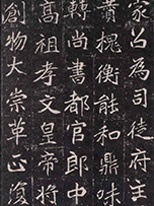 家召為司徒府主
簿槐衡能和鼎味
轉尚書都官郎中
高祖孝文皇帝將
創物大崇革正復